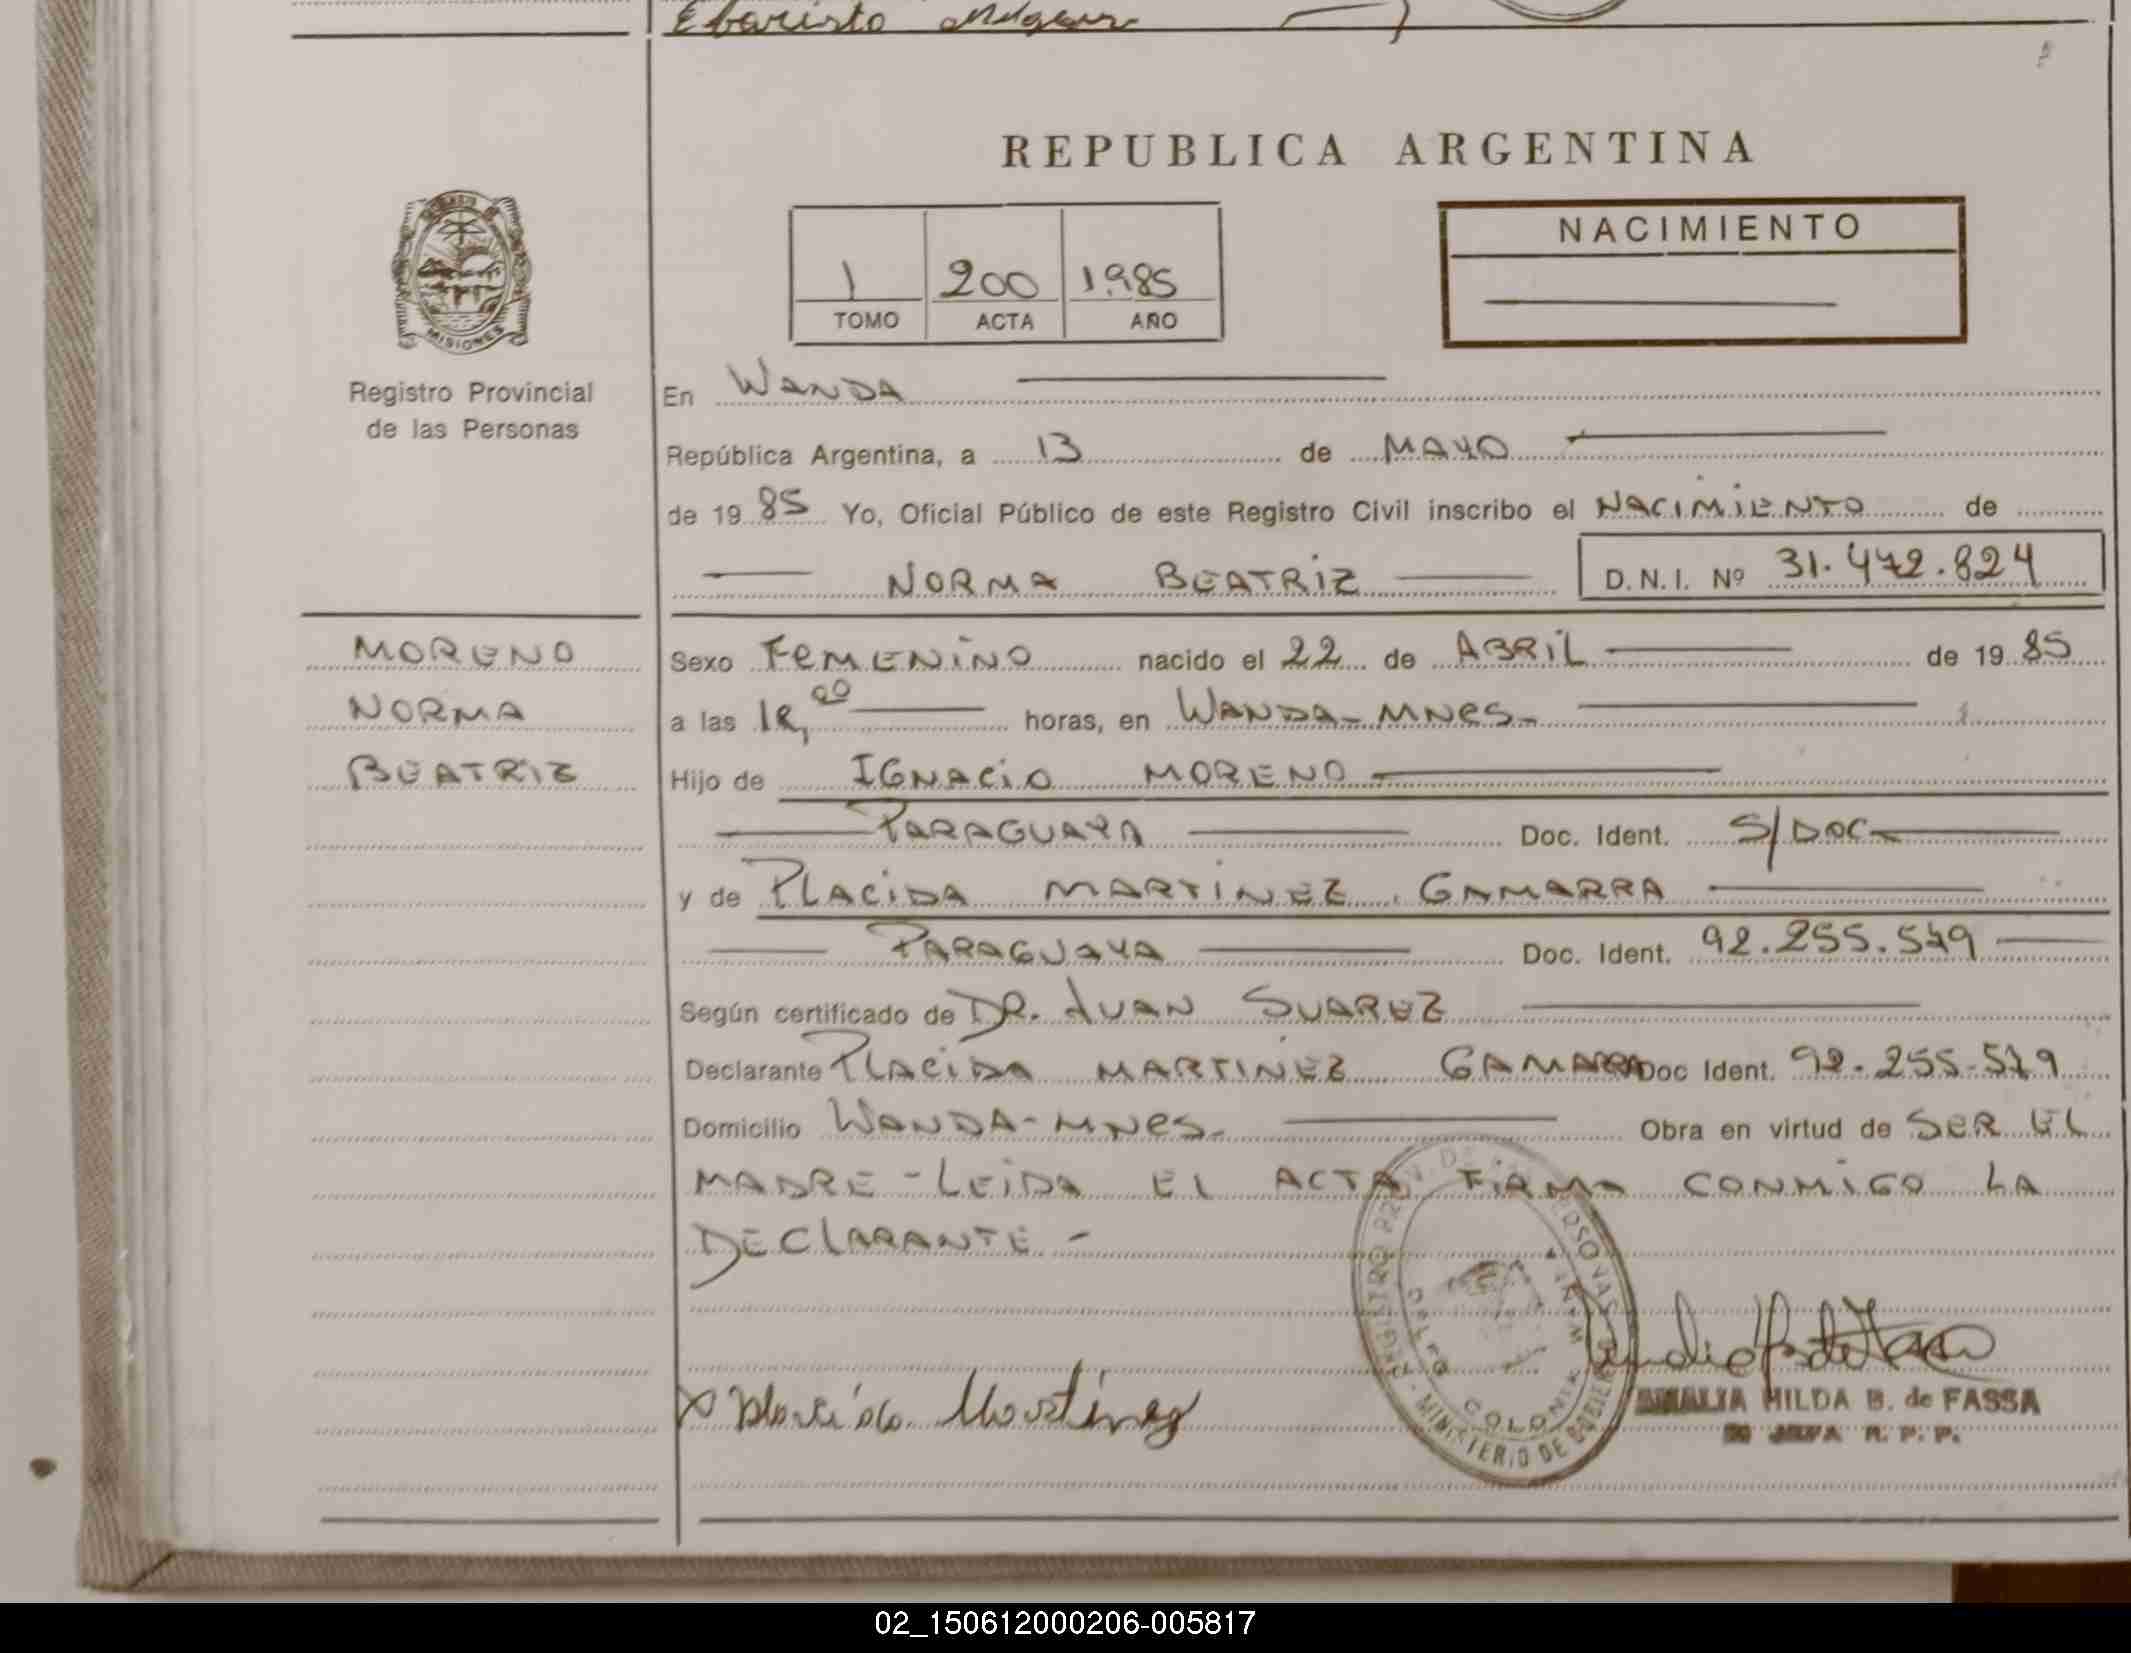 Ebaristo
REPUBLICA ARGENTINA
NACIMIENTO
1 200 1985
TOMO ACTA AÑO
MISIONES
Registro Provincial
de las Personas
En WANDA
República Argentina, a 13 de MAYO
de 19 85 Yo, Oficial Público de este Registro Civil inscribo el NACIMIENTO de
NORMA BEATRIZ D.N.I. Nº 31.472.824
MORENO
NORMA
BEATRIZ
Sexo FEMENINO nacido el 22 de ABRIL de 19 85
a las horas, en WANDA - MNES -
Hijo de IGNACIO MORENO
PARAGUAYA Doc. Ident. S/DOC
y de PLACIDA MARTINEZ GAMARRA
PARAGUAYA Doc. Ident. 92.255.579
Según certificado de DR. JUAN SUAREZ
Declarante PLACIDA MARTINEZ GAMARRA Doc Ident. 92-255-579
Domicilio WANDA - MNES - Obra en virtud de SER EL
MADRE - LEIDA EL ACTA FIRMA CONMIGO LA
DECLARANTE -
Placida Martinez
COLONIA
MINISTERIO DE GOBIERNO
AMALIA HILDA B. de FASSA
JEFA R. P. P.
02_150612000206-005817